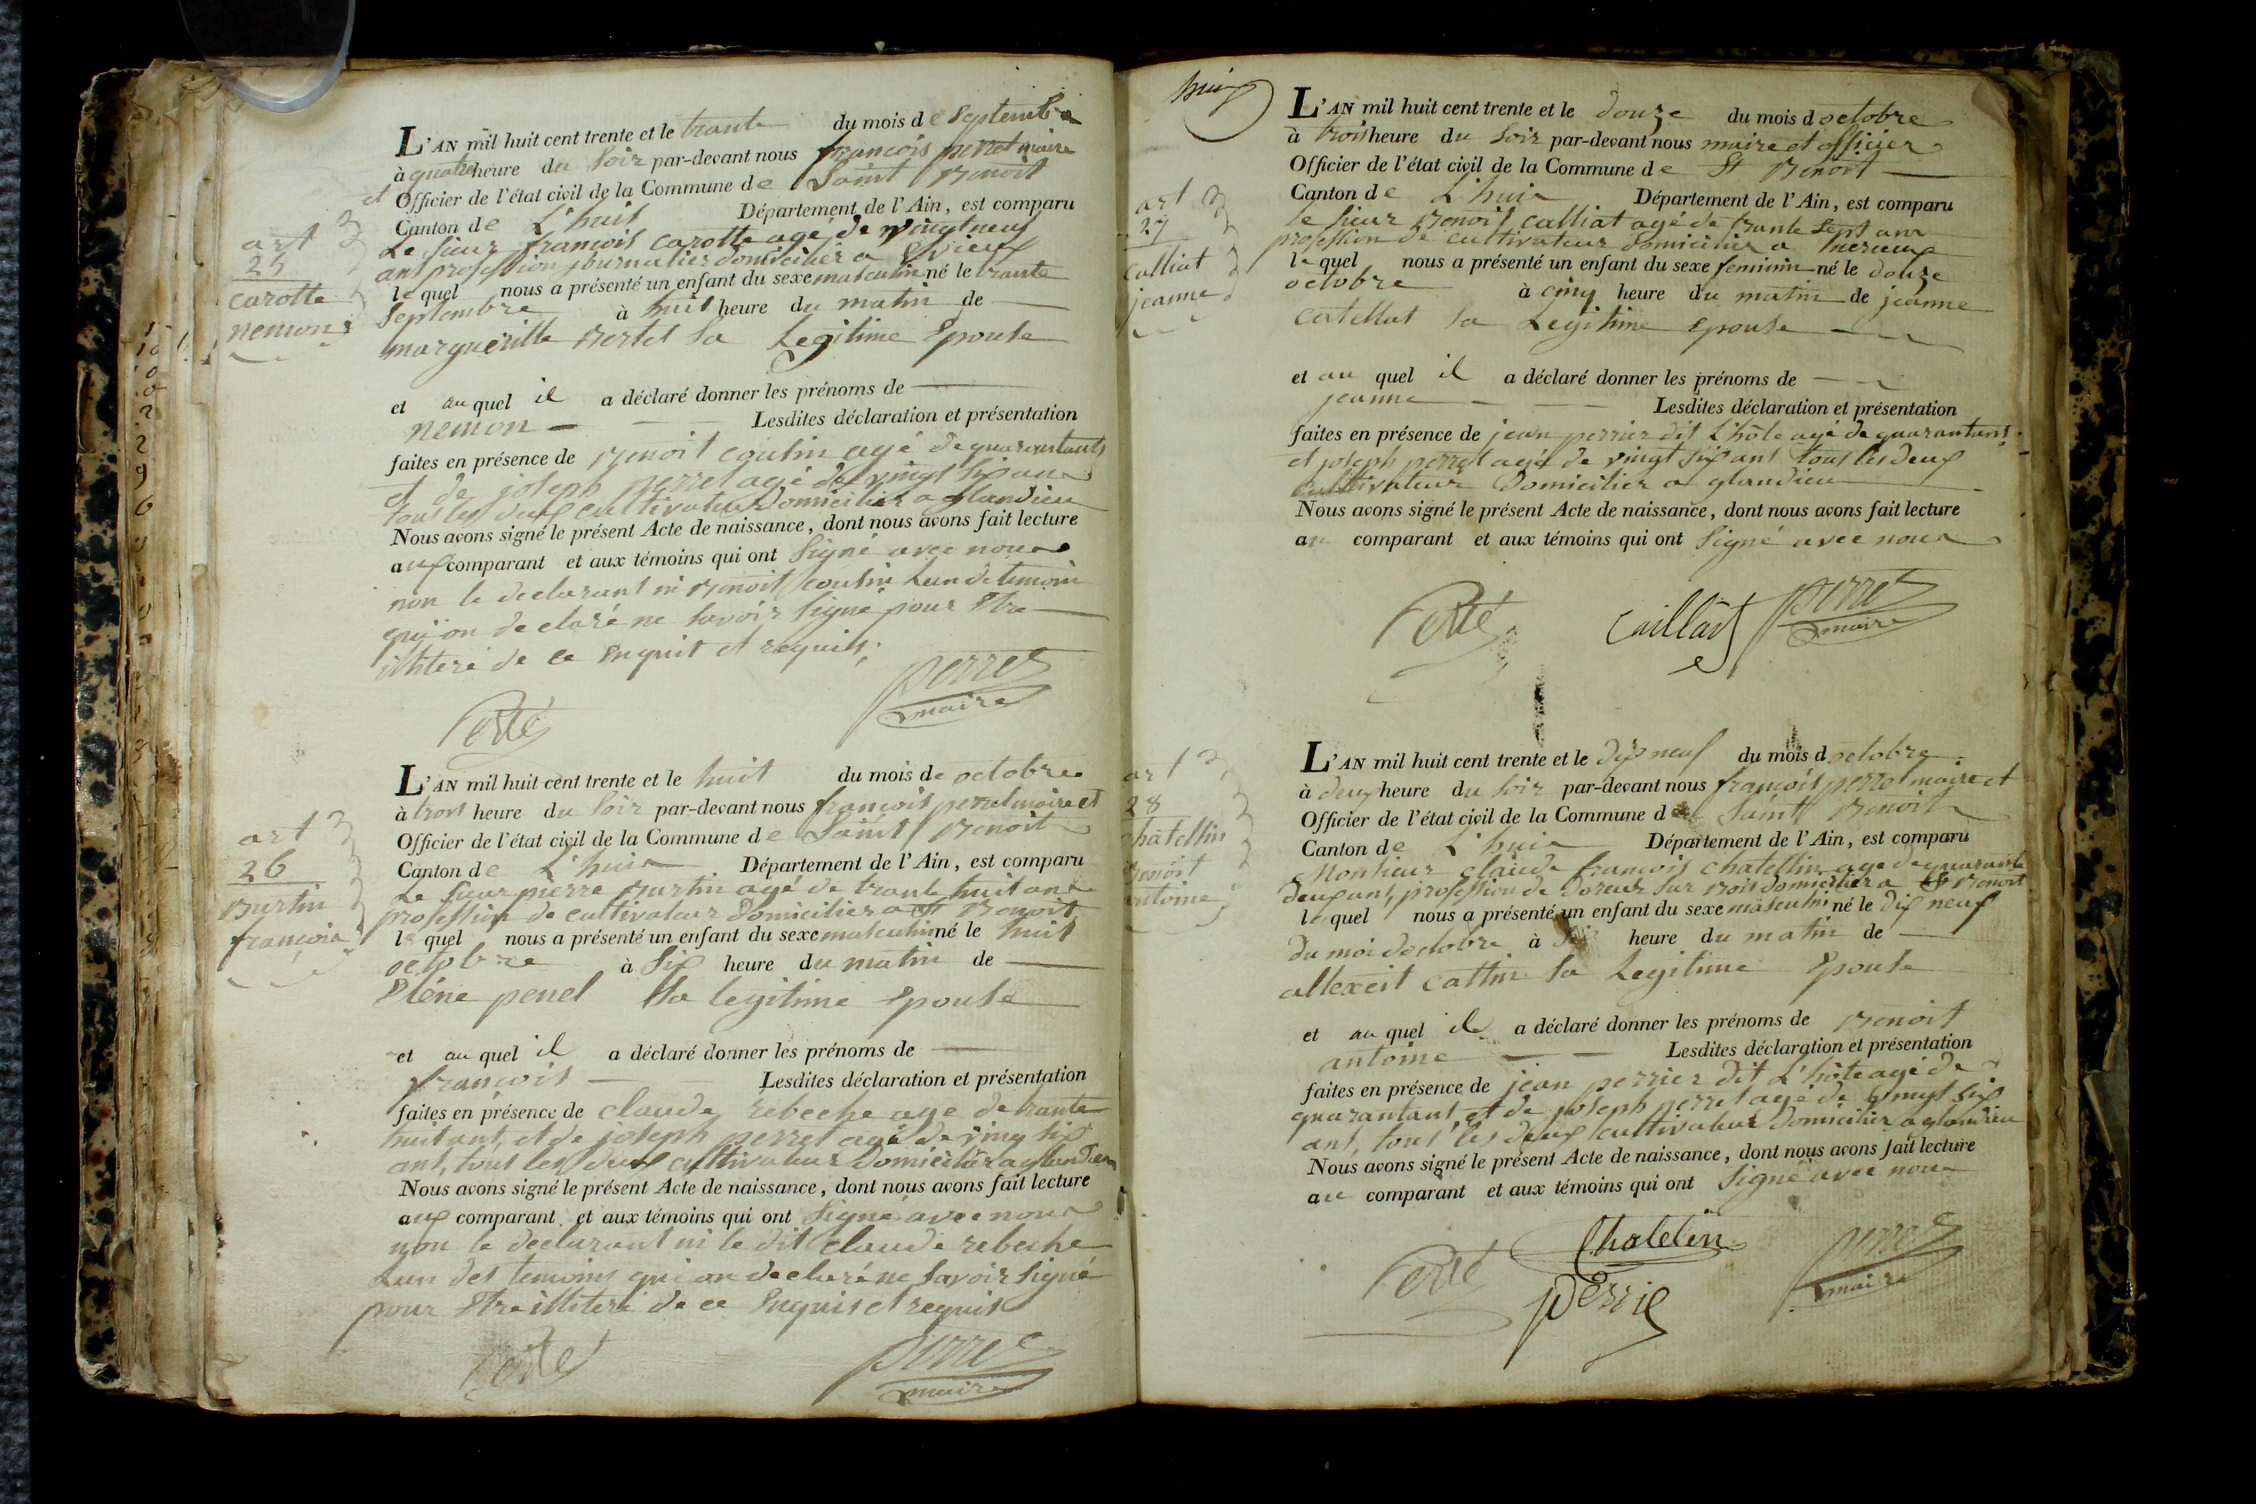 L'AN mil huit cent trente et le trante du mois de Septembre
à quatre heure du soir par-devant nous françois perret maire
et Officier de l'état civil de la Commune de Saint Benoit
Canton de L'huis Département de l'Ain, est comparu
Le sieur françois carotte agé de vingt neuf
ans profession journalier domicilier a
le quel nous a présenté un enfant du sexe masculin né le trante
Septembre à huit heure du matin de
margueritte Bertet sa Legitime Epouse
et au quel il a déclaré donner les prénoms de
nemon Lesdites déclaration et présentation
faites en présence de Benoit cousin agé de quarantans
et de joseph perret agé de vingt six ans
tous les deux cultivateur Domicilier a glandieu
Nous avons signé le présent Acte de naissance, dont nous avons fait lecture
aux comparant et aux témoins qui ont Signé avec nous
non le declarant ni Benoit cousin Lun de temoin
qui on declaré ne savoir signé pour Etre
illiteré de ce Enquit et requis.
perret
maire
art
25
carotte
nemon
L'AN mil huit cent trente et le huit du mois de octobre
à trois heure du soir par-devant nous françois perret maire et
Officier de l'état civil de la Commune de Saint Benoit
Canton de L'huis Département de l'Ain, est comparu
Le sieur pierre Burtin agé de trante huit ans
profession de cultivateur Domicilier a St Benoit
le quel nous a présenté un enfant du sexe masculin né le huit
octobre à Six heure du matin de
Eléne penel Sa legitime Epouse
et au quel il a déclaré donner les prénoms de
françois Lesdites déclaration et présentation
faites en présence de claude rebeche age de trante
huit ans, et de joseph perret agé de ving six
ans, tous les deux cultivateur Domicilier a glandieu
Nous avons signé le présent Acte de naissance, dont nous avons fait lecture
aux comparant et aux témoins qui ont Signé avec nous
non le declarant ni le dit claude rebeche
Lun des temoins qui on declaré ne savoir signé
pour Etre illiteré de ce Enquis et requis
perret
maire
art
26
Burtin
françois
huit
L'AN mil huit cent trente et le douze du mois d octobre
à trois heure du soir par-devant nous maire et officier
Officier de l'état civil de la Commune de St Benoit
Canton de L'huis Département de l'Ain, est comparu
le sieur Benoit calliat agé de trante sept ans
profession de cultivateur domicilier a
le quel nous a présenté un enfant du sexe feminin né le douze
octobre à cinq heure du matin de jeanne
catellat sa Legitime Epouse
et au quel il a déclaré donner les prénoms de
jeanne Lesdites déclaration et présentation
faites en présence de jean perrier dit L'hôte agé de quarantans
et joseph perret agé de vingt six ans tous les deux
cultivateur Domicilier a glandieu
Nous avons signé le présent Acte de naissance, dont nous avons fait lecture
au comparant et aux témoins qui ont Signé avec nous
caillat
perret
maire
art
27
calliat
jeanne
L'AN mil huit cent trente et le dix neuf du mois d octobre
à deux heure du soir par-devant nous françois perret maire et
Officier de l'état civil de la Commune de Saint Benoit
Canton de L'huis Département de l'Ain, est comparu
Monsieur claude françois chatellin agé de quarante
deux ans, profession de Doreur sur Bois Domicilier a St Benoit
le quel nous a présenté un enfant du sexe masculin né le dix neuf
du moi doctobre à heure du matin de
allexcit cattin sa Legitime Epouse
et au quel il a déclaré donner les prénoms de Benoit
antoine Lesdites déclaration et présentation
faites en présence de jean perrier dit L'hôte agé de
quarantans et de joseph perret agé de vingt six
ans, tous les deux cultivateur Domicilier a glandieu
Nous avons signé le présent Acte de naissance, dont nous avons fait lecture
au comparant et aux témoins qui ont Signé avec nous
Chatelin
perret
maire
art
28
chatellin
Benoit
antoine